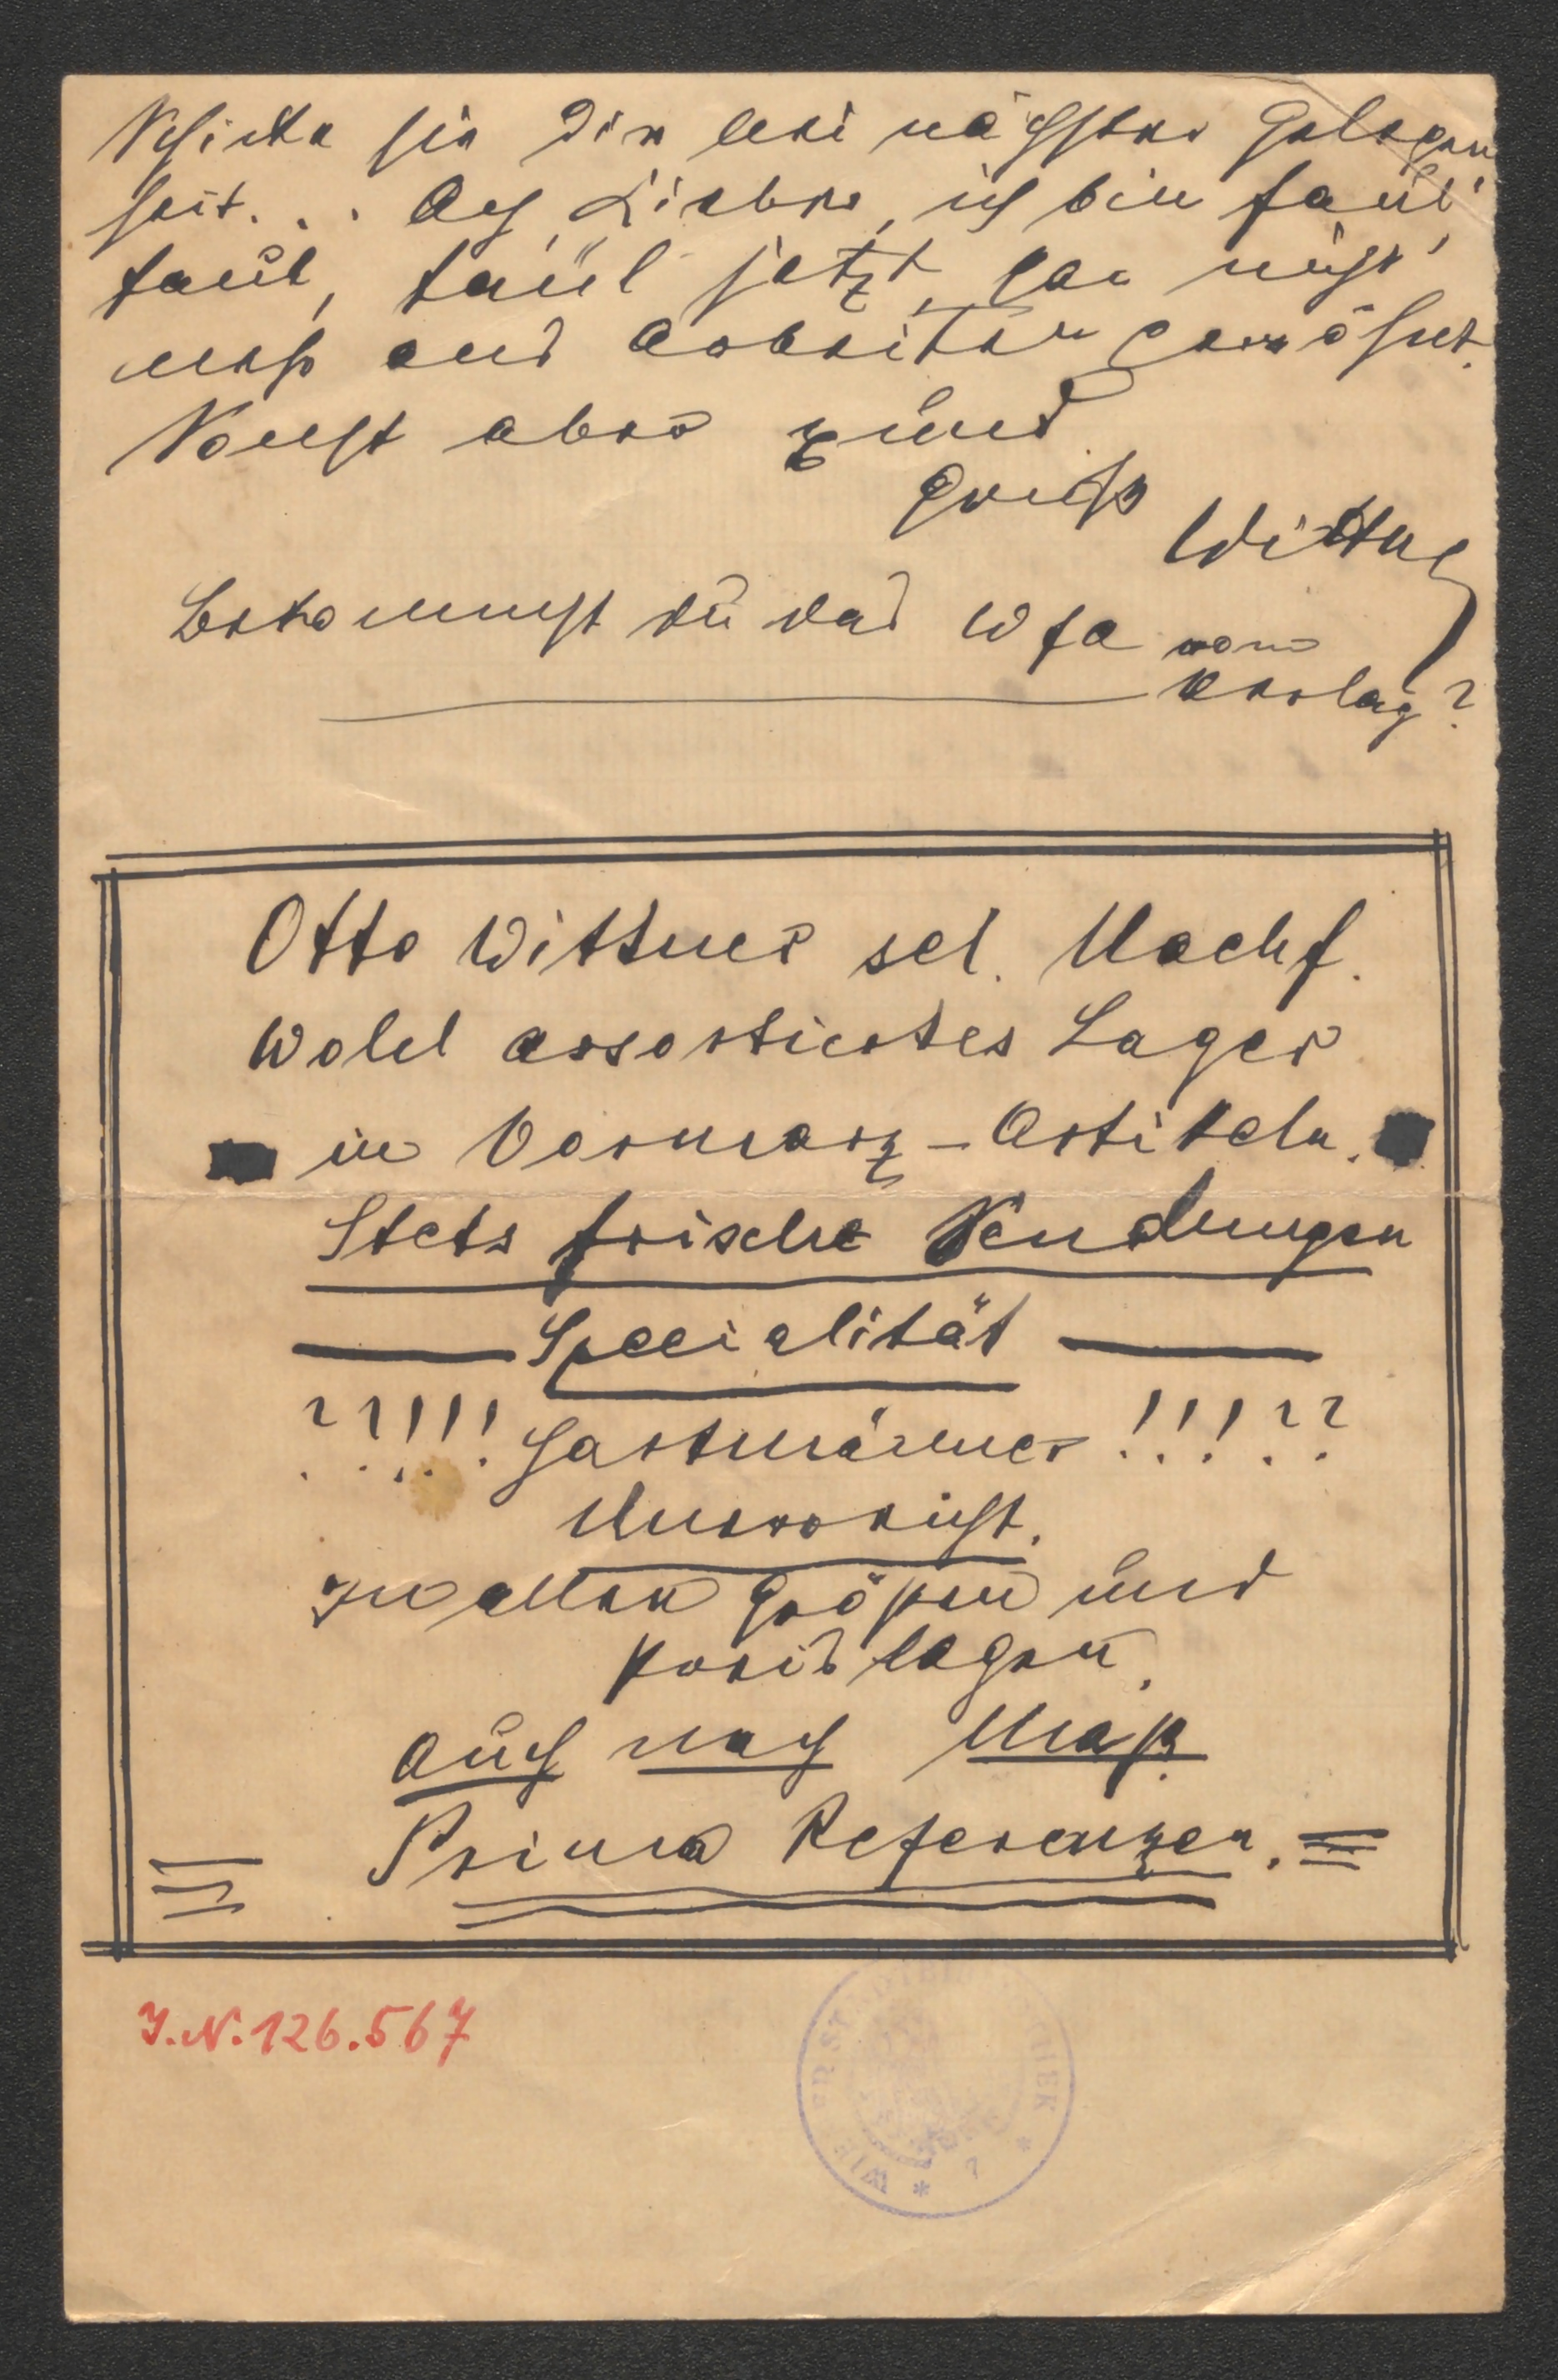 Schicke sie Dir bei nächster Gelegen
heit... Ach Lieber, ich bin faul,
faul, faul jetzt, gar nicht
mehr ans Arbeiten gewöhnt.
Sonst aber gsund
Gruß
Wittner
Bekommst du das W f a vom
Verlag?
Otto Wittner sel. Nachf.
Wohl assortiertes Lager
in Vormärz-Artikeln.
Stets frische Sendungen
Specialität
??!!!! Hartmänner !!!??
Unerreicht.
In allen Größen und
Preislagen.
Auch nach Maß.
Prima Referenzen.
J.N. 126.567